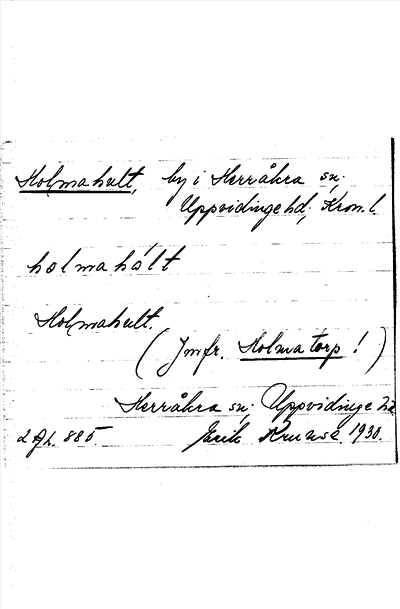 Holmahult, by i Herråkra sn;
Uppvidinge hd; Kron. l.
holmahòlt
Holmahult.
(Jmfr. Holmatorp!)
Herråkra sn; Uppvidinge hd
885. Erik 1930.